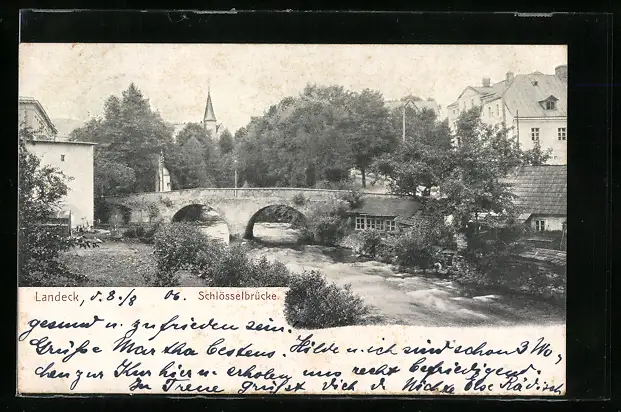 Landeck, d. 8./9 06. Schlösselbrücke.
gesund u. zufrieden sein.
Grüße Martha bestens. Hilde u. ich sind schon 3 Wo-
chen zur Kur hier u. erholen uns recht befriedigend.
In Treue grüßt dich d. Nichte